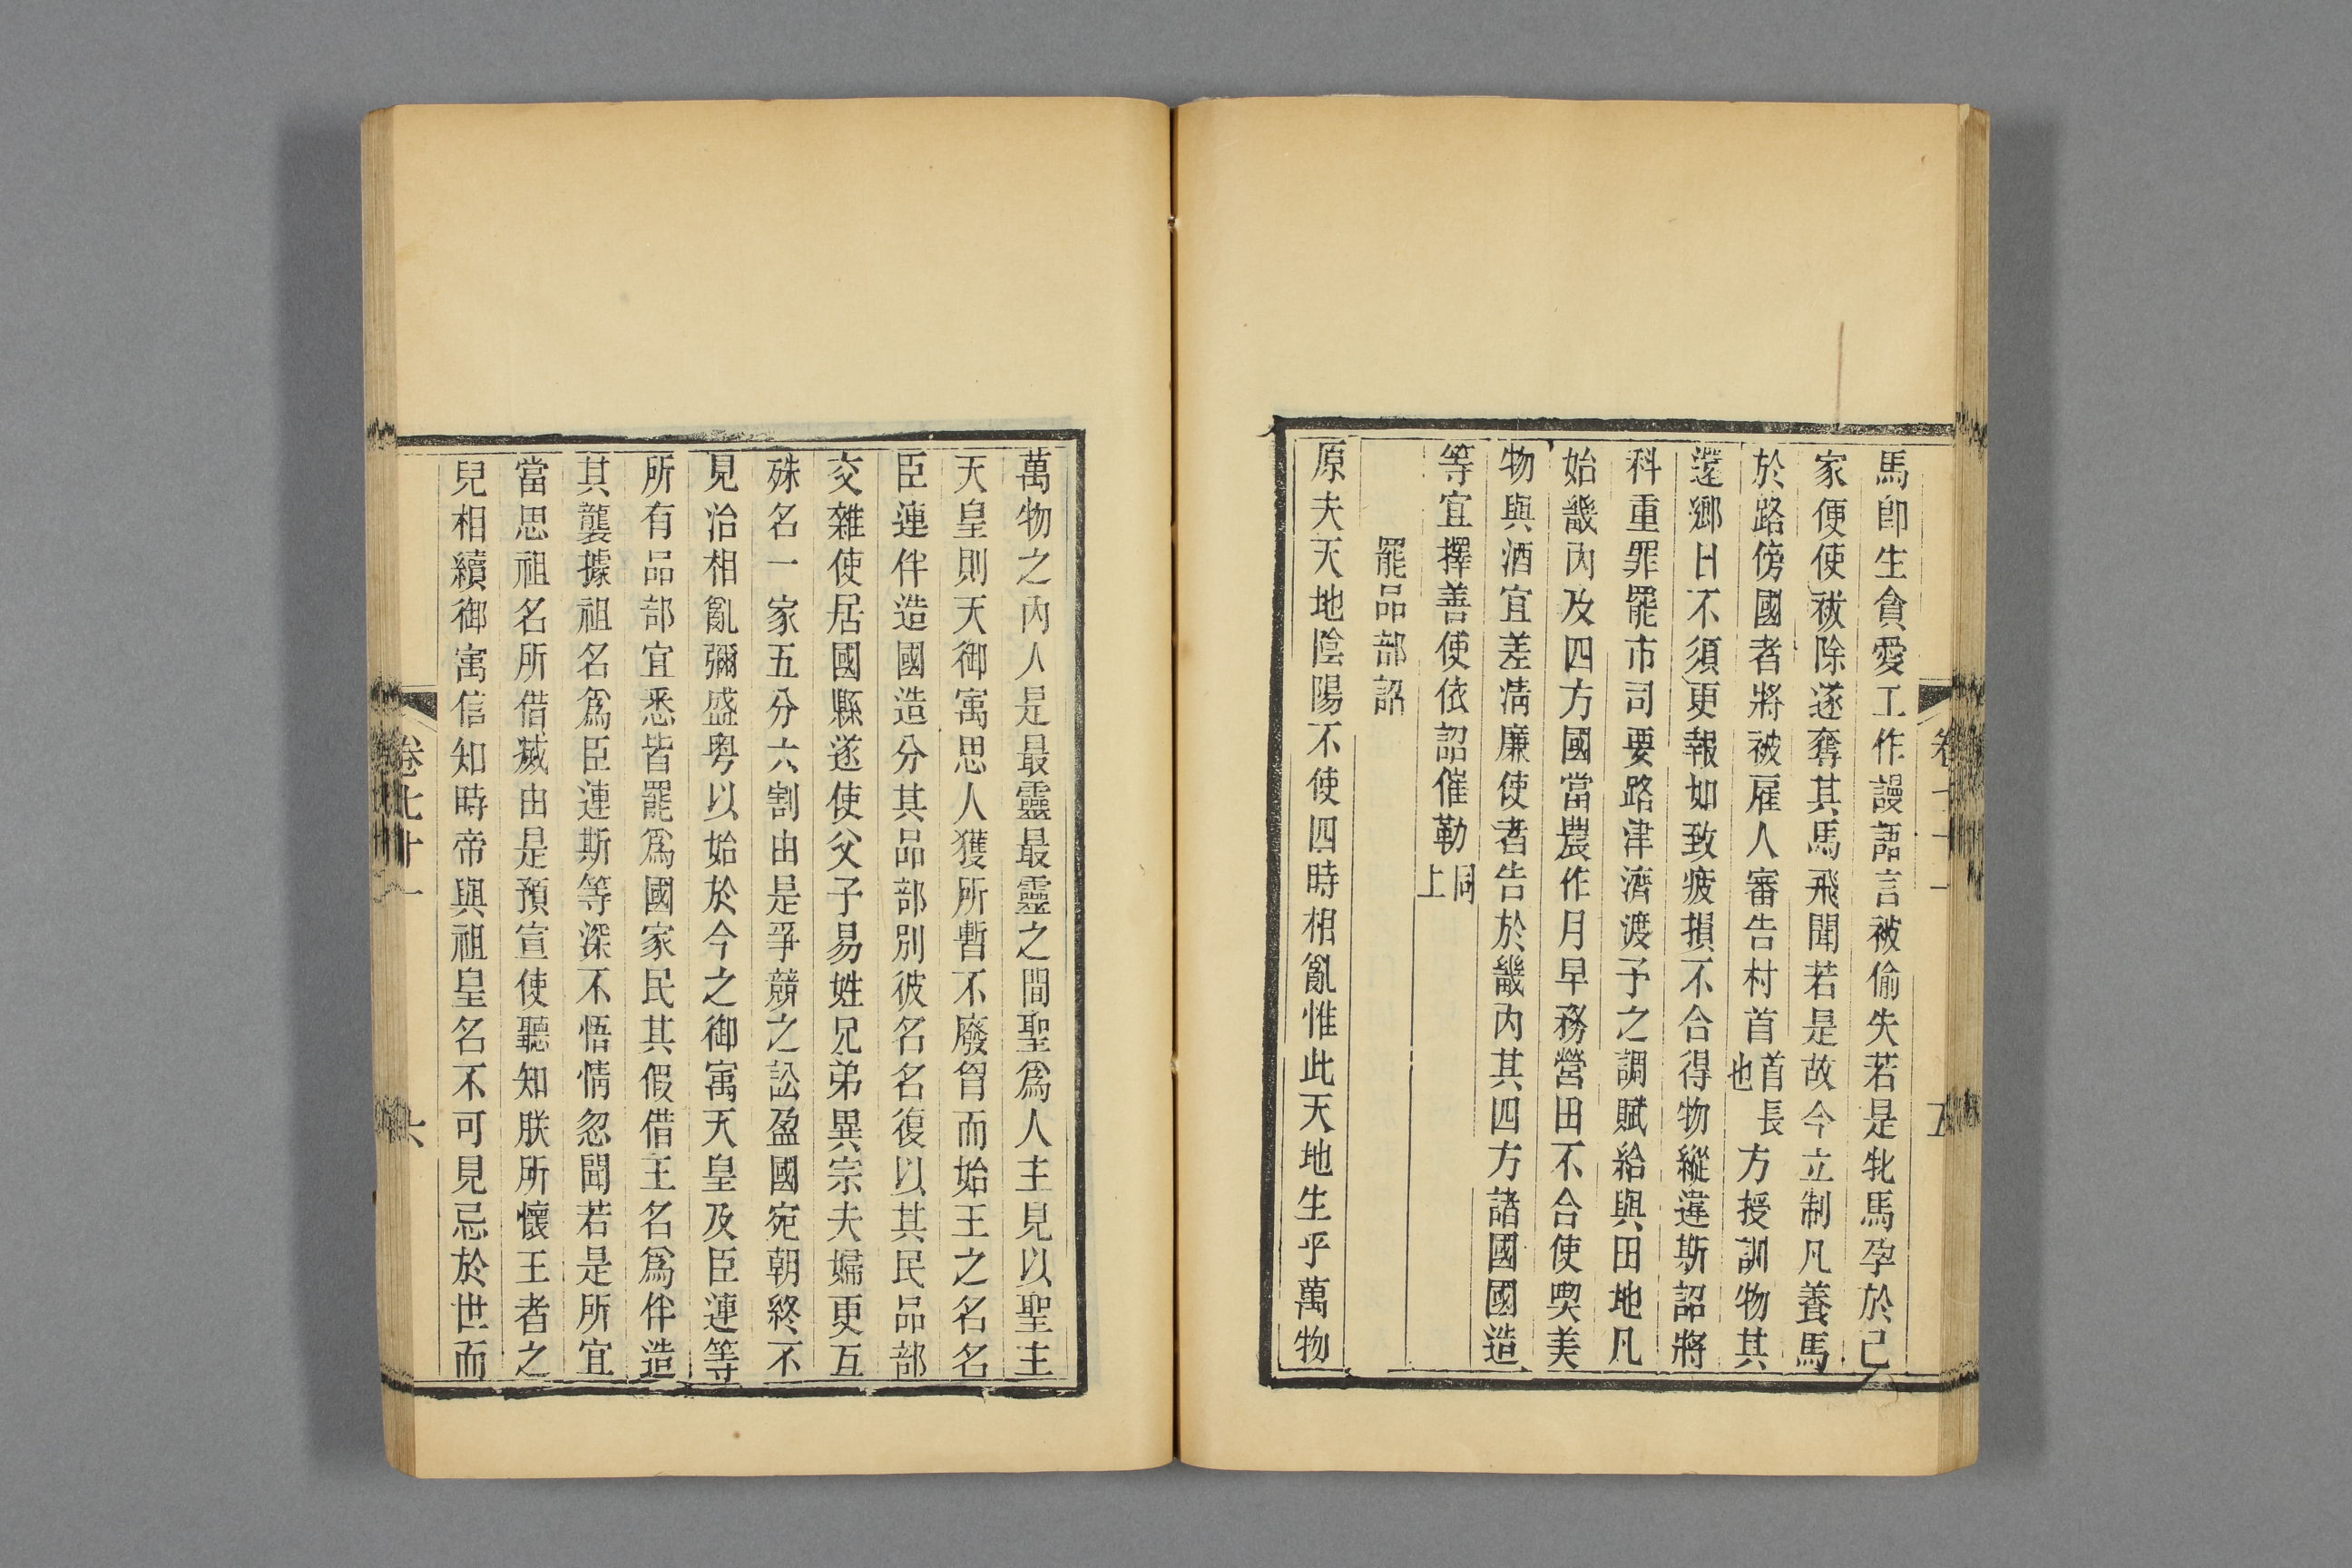 馬卽生貪愛工作謾語言被偷失若是牝馬孕於己
家便使祓除遂奪其馬飛聞若是故今立制凡養馬
於路傍國者將被雇人審告村首首長也方授訓物其
還鄉日不須更報如致疲損不合得物縱違斯詔將
科重罪罷市司要路津濟渡子之調賦給與田地凡
始畿內及四方國當農作月早務營田不合使喫美
物與酒宜差清廉使者告於畿內其四方諸國國造
等宜擇善使依詔催勒同上
罷品部詔
原夫天地陰陽不使四時相亂惟此天地生乎萬物
五
萬物之內人是最靈最靈之間聖爲人主見以聖主
天皇則天御寓思人獲所暫不廢胷而始王之名名
臣連伴造國造分其品部別彼名名復以其民品部
交雜使居國縣遂使父子易姓兄弟異宗夫婦更互
殊名一家五分六割由是爭競之訟盈國宛朝終不
見治相亂彌盛粤以始於今之御寓天皇及臣連等
所有品部宜悉皆罷爲國家民其假借王名爲伴造
其襲據祖名爲臣連斯等深不悟情忽聞若是所宜
當思祖名所借滅由是預宣使聽知朕所懷王者之
兒相續御寓信知時帝與祖皇名不可見忌於世而
卷七十一
六